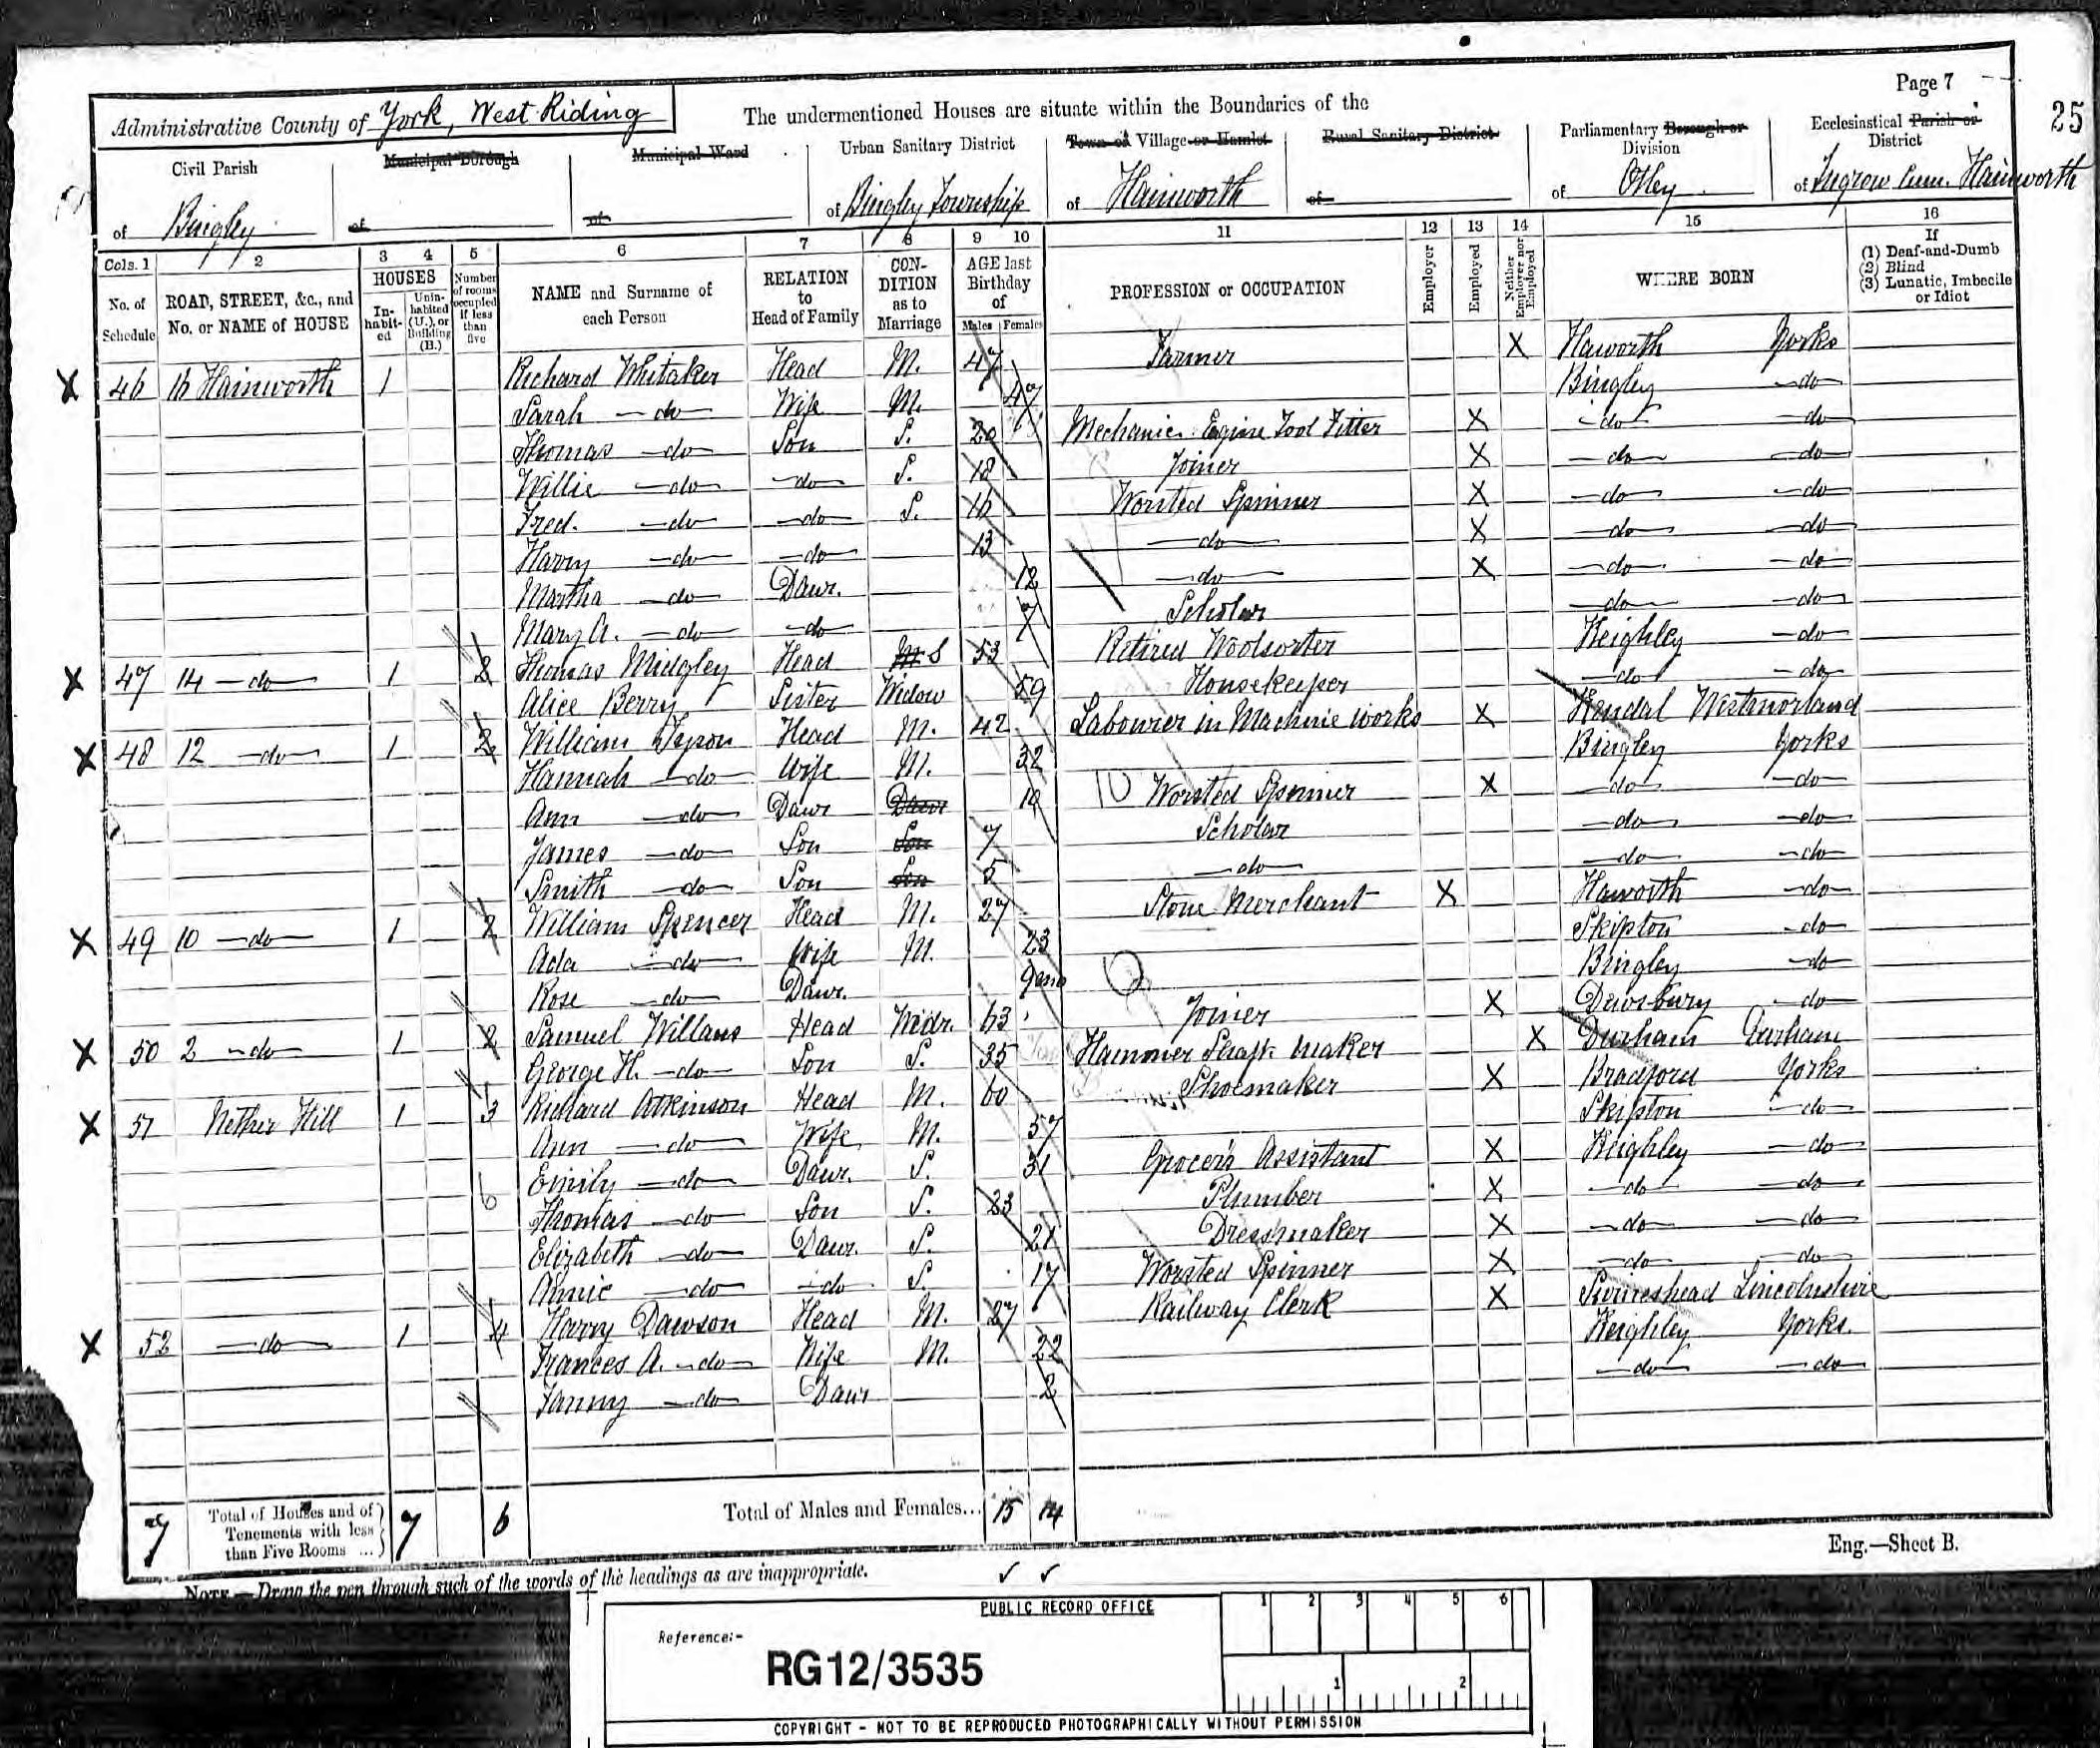 Page 7
25
Administrative County of York, West Riding
The undermentioned Houses are situate within the Boundaries of the
Civil Parish of Bingley
Municipal Borough of
Municipal Ward of
Urban Sanitary District of Bingley Township
Town or Village or Hamlet of Hainworth
Rural Sanitary District of
Parliamentary Borough or Division of Otley
Ecclesiastical Parish or District of Ingrow cum Hainworth
Cols. 1 2 3 4 5 6 7 8 9 10 11 12 13 14 15 16
No. of Schedule
ROAD, STREET, &c., and No. or NAME of HOUSE
HOUSES
Inhabited
Uninhabited (U.), or Building (B.)
Number of rooms occupied if less than five
NAME and Surname of each Person
RELATION to Head of Family
CONDITION as to Marriage
AGE last Birthday of
Males Females
PROFESSION or OCCUPATION
Employer
Employed
Neither Employer nor Employed
WHERE BORN
If (1) Deaf-and-Dumb (2) Blind (3) Lunatic, Imbecile or Idiot
X 46 16 Hainworth 1 Richard Whitaker Head M. 47 Farmer X Haworth Yorks
Sarah do Wife M. 47 Bingley do
Thomas do Son S. 20 Mechanic Engine Tool Fitter X do do
Willie do do S. 18 Joiner X do do
Fred. do do S. 16 Worsted Spinner X do do
Harry do do 13 do X do do
Martha do Daur. 12 do X do do
Mary A. do do 7 Scholar do do
X 47 14 do 1 2 Thomas Midgley Head M S 53 Retired Woolsorter Keighley do
Alice Berry Sister Widow 59 Housekeeper do do
X 48 12 do 1 2 William Tyson Head M. 42 Labourer in Machine works X Kendal Westmorland
Hannah do Wife M. 32 Bingley Yorks
Ann do Daur Daur 10 10 Worsted Spinner X do do
James do Son Son 7 Scholar do do
Smith do Son Son 5 do do do
X 49 10 do 1 2 William Spencer Head M. 27 Stone Merchant X Haworth do
Ada do Wife M. 23 Skipton do
Rose do Daur. 9mo Bingley do
X 50 2 do 1 2 Samuel Willans Head Widr. 63 Joiner X Dewsbury do
George H. do Son S. 35 Hammer Shaft maker X Durham Durham
X 51 Nether Hill 1 3 Richard Atkinson Head M. 60 Shoemaker X Bradford Yorks
Ann do Wife M. 57 Skipton do
Emily do Daur. S. 31 Grocer's Assistant X Keighley do
6 Thomas do Son S. 23 Plumber X do do
Elizabeth do Daur. S. 21 Dressmaker X do do
Annie do do S. 17 Worsted Spinner X do do
X 52 do 1 4 Harry Dawson Head M. 27 Railway Clerk X Swineshead Lincolnshire
Frances A. do Wife M. 22 Keighley Yorks.
Fanny do Daur 2 do do
7 Total of Houses and of Tenements with less than Five Rooms ... 7 6 Total of Males and Females... 15 14
Eng.—Sheet B.
NOTE.—Draw the pen through such of the words of the headings as are inappropriate.
PUBLIC RECORD OFFICE
1 2 3 4 5 6
Reference:-
RG12/3535
1 2
COPYRIGHT - NOT TO BE REPRODUCED PHOTOGRAPHICALLY WITHOUT PERMISSION